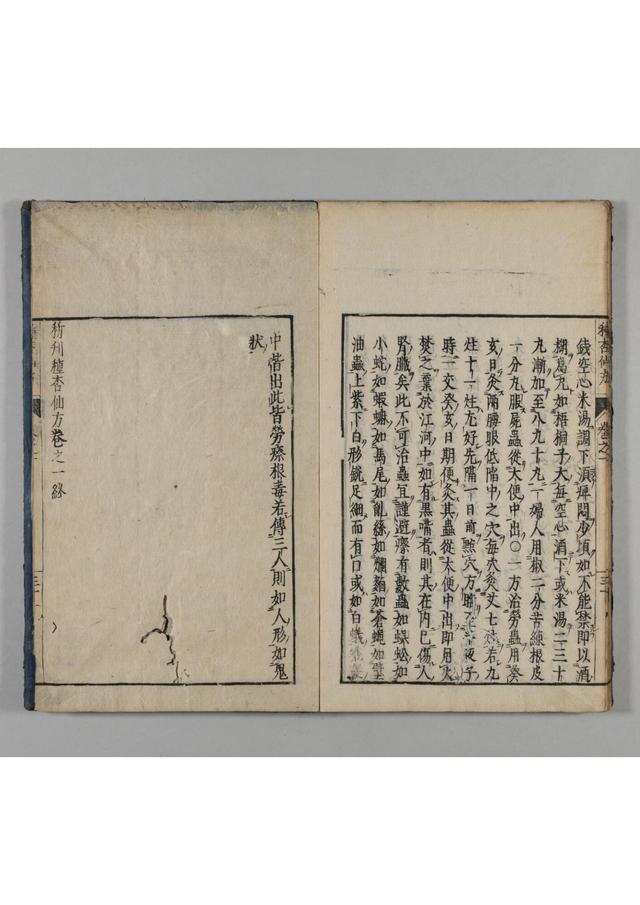 錢空心米湯調下須臾悶少頃如不能禁即以酒
糊為丸如梧桐子大每空心酒下或米湯二三十
丸漸加至八九十丸一婦人用椒二分苦練根皮
一分丸服屍蟲從大便中出〇一方治勞蟲用癸
亥日灸兩腰眼低陷中之穴每穴灸艾七炷若九
炷十一炷尤好先隔一日前點穴方睡至夜子
時一交癸亥日期便灸其蟲從大便中出即用火
焚之棄於江河中如有黑嘴者則其在內已傷人
腎臟矣此不可治蟲宜謹避瘵有數蟲如蜈蚣如
小蛇如蝦蟆如馬尾如亂絲如爛麵如蒼蠅如壁
油蟲上紫下白形銳足細而有口或如白蟻
中悉出此皆勞瘵根毒若傳三人則如人形如鬼
狀
新刊種杏仙方卷之一終